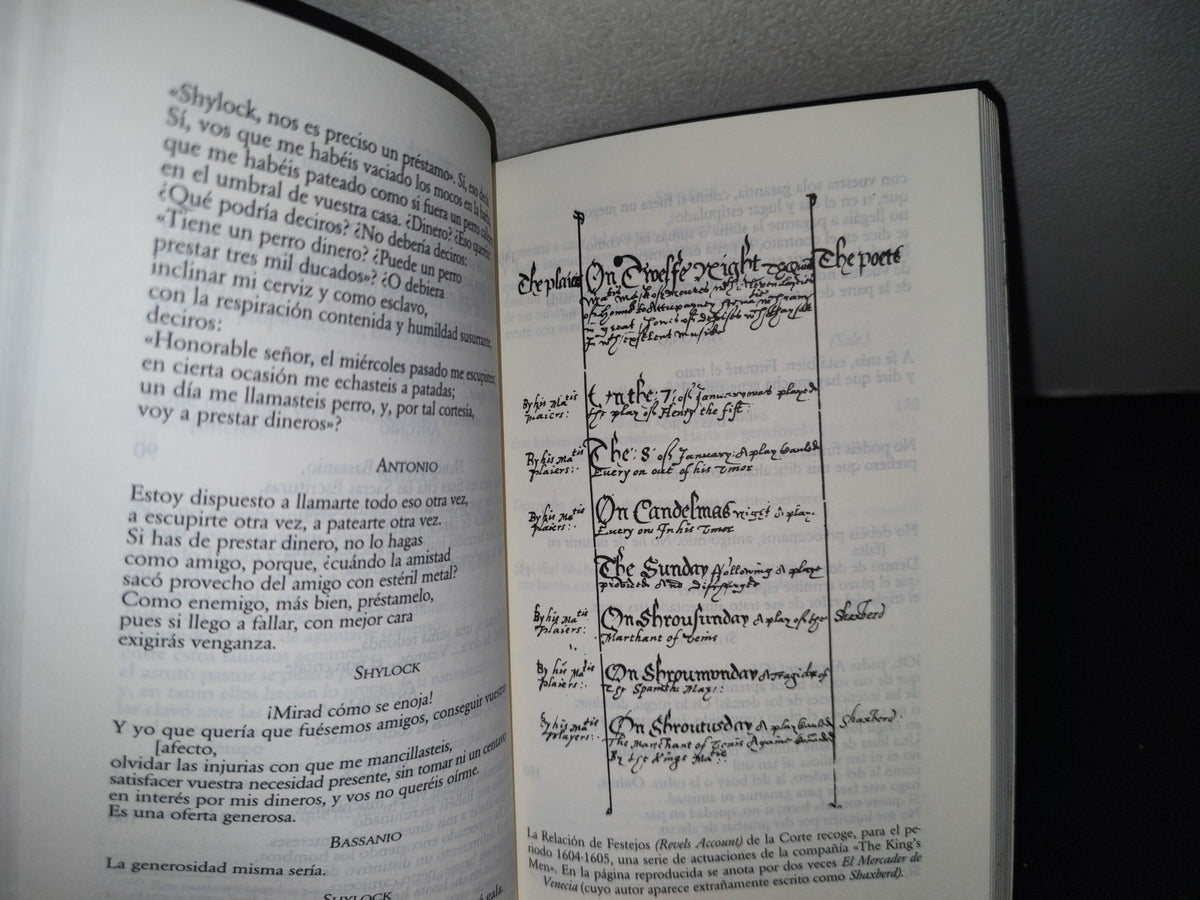 «Shylock, nos es preciso un préstamo». Sí, eso
Sí, vos que me habéis vaciado los mocos en la
que me habéis pateado como si fuera un perro
en el umbral de vuestra casa. ¿Dinero? ¿Eso
¿Qué podría deciros? ¿No debería deciros:
«Tiene un perro dinero? ¿Puede un perro
prestar tres mil ducados»? ¿O debiera
inclinar mi cerviz y como esclavo,
con la respiración contenida y humildad susurrante,
deciros:
«Honorable señor, el miércoles pasado me escupisteis;
en cierta ocasión me echasteis a patadas;
un día me llamasteis perro, y, por tal cortesía,
voy a prestar dineros»?
ANTONIO
Estoy dispuesto a llamarte todo eso otra vez,
a escupirte otra vez, a patearte otra vez.
Si has de prestar dinero, no lo hagas
como amigo, porque, ¿cuándo la amistad
sacó provecho del amigo con estéril metal?
Como enemigo, más bien, préstamelo,
pues si llego a fallar, con mejor cara
exigirás venganza.
SHYLOCK
¡Mirad cómo se enoja!
Y yo que quería que fuésemos amigos, conseguir vuestro
[afecto,
olvidar las injurias con que me mancillasteis,
satisfacer vuestra necesidad presente, sin tomar ni un centavo
en interés por mis dineros, y vos no queréis oírme.
Es una oferta generosa.
BASSANIO
La generosidad misma sería.
SHYLOCK
The plaiers
On Twelfe Night
The poets
By his Matis
plaiers:
On the 7: of January was played
the play of Henry the fift:
By his Matis
plaiers:
The: 8: of January: A play Cauled
Every on out of his Umor
By his Matis
plaiers:
On Candelmas night A play
Every on In his Umor
The Sunday following A playe
provided And discharged
By his Matis
plaiers:
On Shrousunday A play of the
Marthant of Venis
Shaxberd
By his Matis
plaiers:
On Shroumonday A Tragidie of
The Spanishe Maz:
By his Matis
players:
On Shroutusday A play Cauled
The Martchant of Venis Againe
By the Kings Matie
Shaxberd.
La Relación de Festejos (Revels Account) de la Corte recoge, para el pe-
ríodo 1604-1605, una serie de actuaciones de la compañía «The King's
Men». En la página reproducida se anota por dos veces El Mercader de
Venecia (cuyo autor aparece extrañamente escrito como Shaxberd).